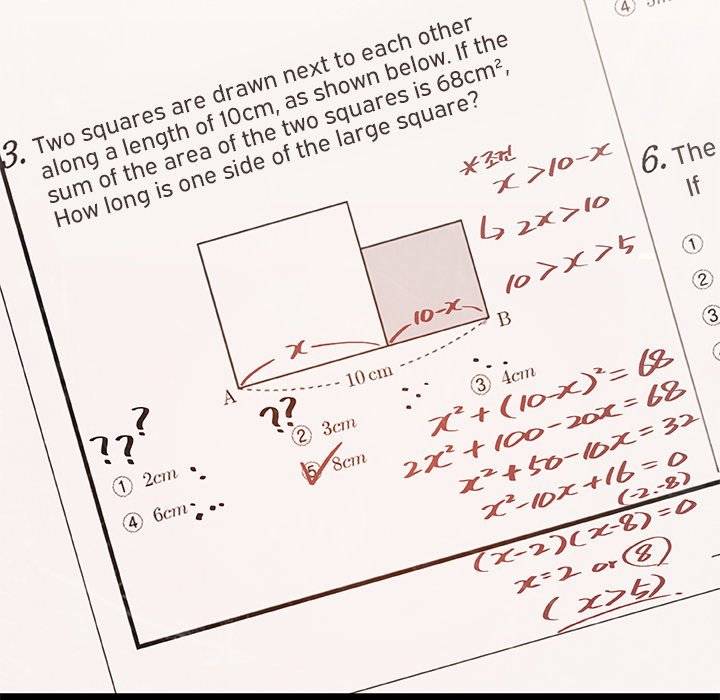 3. Two squares are drawn next to each other
along a length of 10cm, as shown below. If the
sum of the area of the two squares is 68cm²,
How long is one side of the large square?
*조건
x > 10-x
↳ 2x > 10
10 > x > 5
x
10-x
A
10 cm
B
???
??
① 2cm
② 3cm
③ 4cm
④ 6cm
⑤ 8cm
x² + (10-x)² = 68
2x² + 100 - 20x = 68
x² + 50 - 10x = 32
x² - 10x + 16 = 0
(-2.-8)
(x-2)(x-8) = 0
x = 2 or 8
(x>5).
④
6. The
If
①
②
③